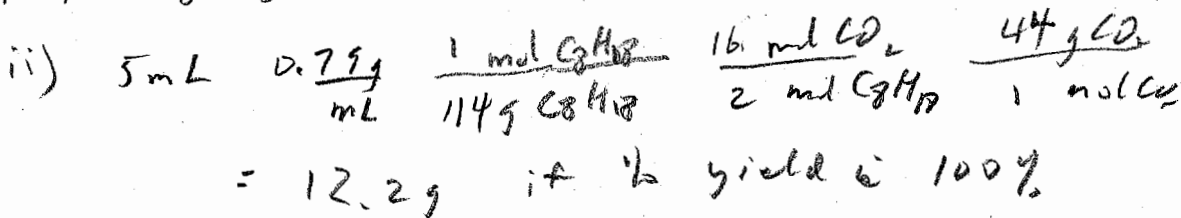 ii) 5 mL 0.79g/mL 1 mol C8H18/114g C8H18 16 mol CO2/2 mol C8H18 44 g CO2/1 mol CO2
= 12.2g if % yield is 100%